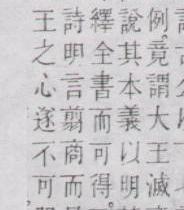 例竟謂大王滅
說其本義以明
繹全書而可得
詩明言翦商而
王之心遂不可